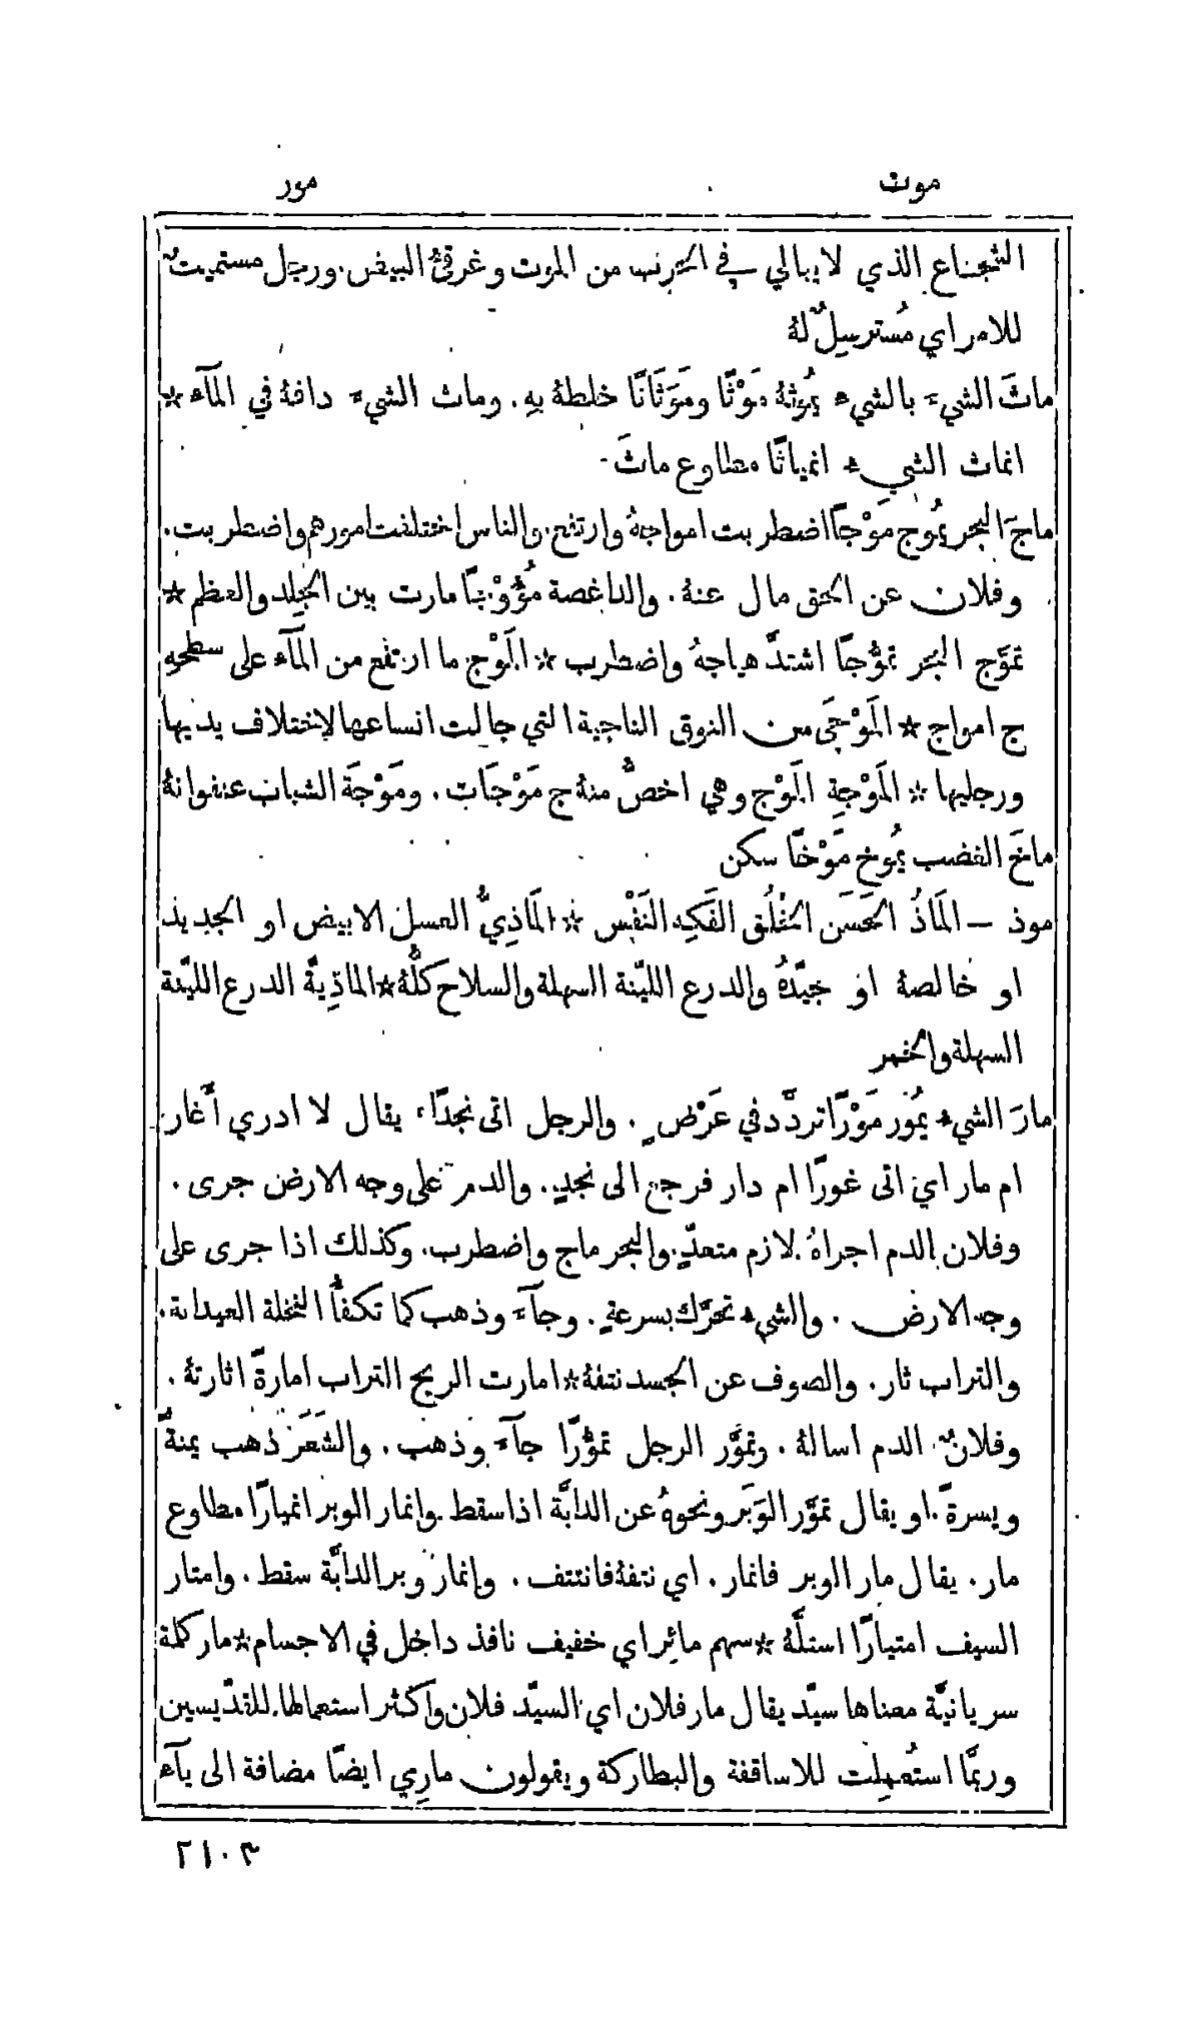 موت
مور
الشجاع الذي لا يبالي في الحرب من الموت وغرقئ البيض. ورجل مستميتٌ
للامر اي مُسترسِلٌ لهُ
ماثَ الشيءَ بالشيءِ يمُوثهُ مَوْثًا ومَوَثَانًا خلطهُ بهِ. وماث الشيءَ دافهُ في المآءِ ☆
انماث الشيءُ انمياثًا مطاوع ماثَ
ماجَ البحر يمُوج مَوْجًا اضطربت امواجهُ وارتفع. والناس اختلفت امورهم واضطربت.
وفلان عن الحق مال عنهُ. والداغصة مُؤُوْجًا مارت بين الجِلد والعظم ☆
تموَّج البحر تموُّجًا اشتدَّ هياجهُ واضطرب ☆ المَوْج ما ارتفع من المآءِ على سطحهِ
ج امواج ☆ المَوْجَى من النوق الناجية التي جالت انساعها لاختلاف يديها
ورجليها ☆ المَوْجة المَوْج وهي اخصُّ منهُ ج مَوْجَات. ومَوْجَة الشباب عنفوانهُ
ماخَ الغضب يمُوخ مَوْخًا سكن
موذ — المَاذُ الحَسَن الخُلُق الفَكِه النَفْس ☆ المَاذِيُّ العسل الابيض او الجديد
او خالصهُ او جيّدهُ والدرع الليّنة السهلة والسلاح كلُّهُ ☆ الماذِيَّة الدرع الليّنة
السهلة والخمر
مارَ الشيءُ يمُور مَوْرًا تردَّد في عَرْضٍ. والرجل اتى نجدًا، يقال لا ادري أَغار
ام مار اي اتى غورًا ام دار فرجع الى نجدٍ. والدم على وجه الارض جرى.
وفلان الدم اجراهُ لازم متعدٍّ. والبحر ماج واضطرب. وكذلك اذا جرى على
وجه الارض. والشيءُ تحرَّك بسرعةٍ. وجآءَ وذهب كما تكفأُ النخلة العيدانة.
والتراب ثار. والصوف عن الجسد نتفهُ ☆ امارت الريح التراب امارةً اثارتهُ.
وفلانٌ الدم اسالهُ. وتموَّر الرجل تموُّرًا جآءَ وذهب. والشَعَر ذهب يمنةً
ويسرةً. او يقال تموَّر الوَبَر ونحوهُ عن الدابَّة اذا سقط. وانمار الوبر انميارًا مطاوع
مار. يقال مار الوبر فانمار. اي نتفهُ فانتتف. وانمار وبر الدابَّة سقط. وامتار
السيف امتيارًا استلَّهُ ☆ سهم مائِر اي خفيف نافذ داخل في الاجسام ☆ مار كلمة
سريانيَّة معناها سيّد يقال مار فلان اي السيّد فلان واكثر استعمالها للقدّيسين
وربَّما استُعمِلت للاساقفة والبطاركة ويقولون مارِي ايضًا مضافة الى يآءِ
٢١٠٣